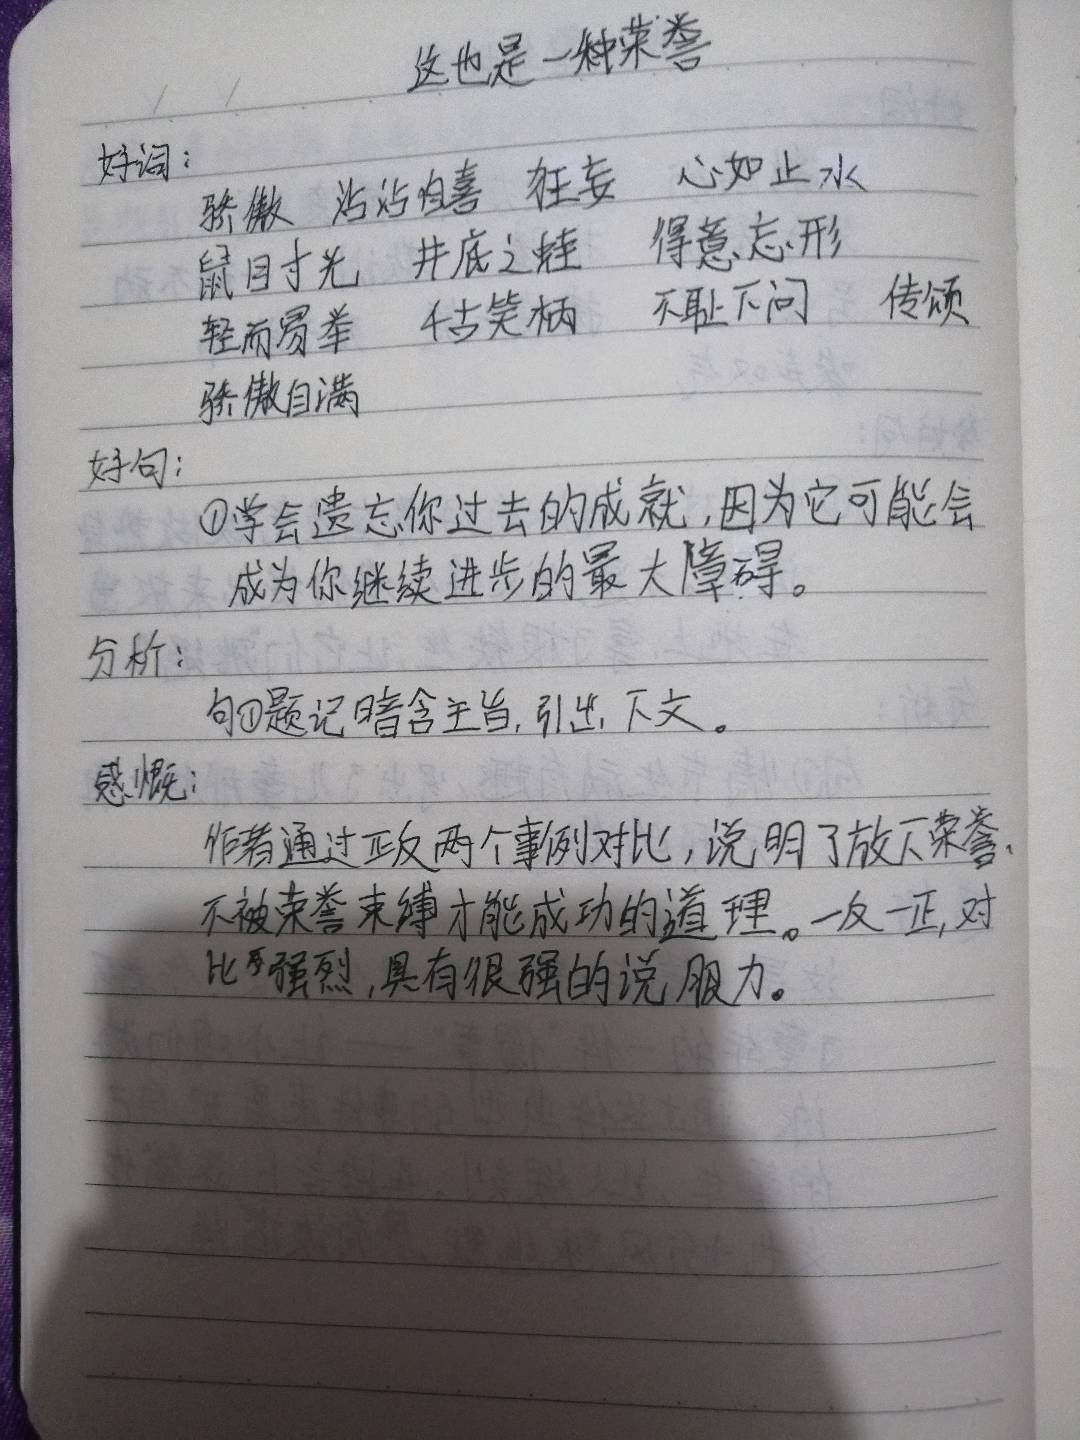 这也是一种荣誉
好词：
骄傲 沾沾自喜 狂妄 心如止水
鼠目寸光 井底之蛙 得意忘形
轻而易举 千古笑柄 不耻下问 传颂
骄傲自满
好句：
①学会遗忘你过去的成就，因为它可能会
成为你继续进步的最大障碍。
分析：
句①题记暗含主旨，引出下文。
感慨：
作者通过正反两个事例对比，说明了放下荣誉、
不被荣誉束缚才能成功的道理。一反一正，对
比强烈，具有很强的说服力。